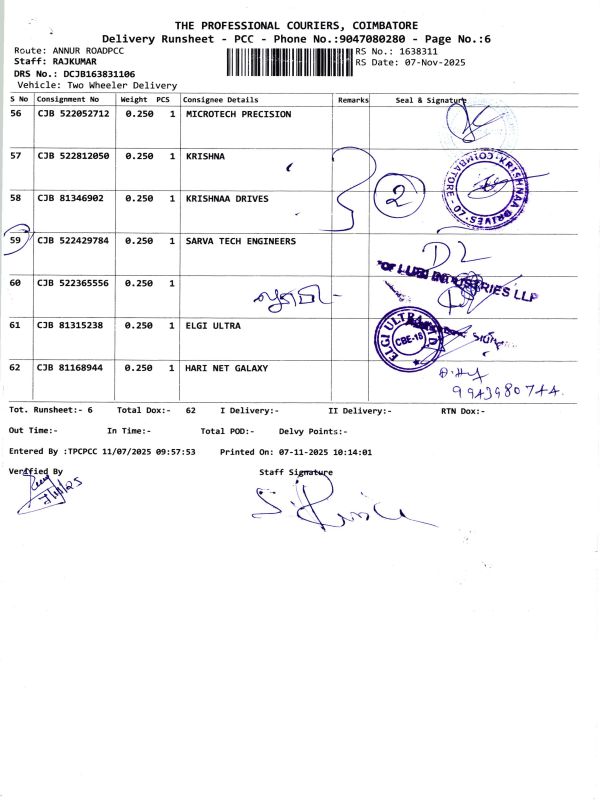 THE PROFESSIONAL COURIERS, COIMBATORE
Delivery Runsheet - PCC - Phone No.:9047080280 - Page No.:6
Route: ANNUR ROADPCC RS No.: 1638311
Staff: RAJKUMAR RS Date: 07-Nov-2025
DRS No.: DCJB163831106
Vehicle: Two Wheeler Delivery
S No Consignment No Weight PCS Consignee Details Remarks Seal & Signature
56 CJB 522052712 0.250 1 MICROTECH PRECISION
57 CJB 522812050 0.250 1 KRISHNA
COIMBATORE KRISHNAA DRIVES
2
58 CJB 81346902 0.250 1 KRISHNAA DRIVES
59 CJB 522429784 0.250 1 SARVA TECH ENGINEERS
DL
60 CJB 522365556 0.250 1
LUBI INDUSTRIES LLP
61 CJB 81315238 0.250 1 ELGI ULTRA
ELGI ULTRA
CBE-18
62 CJB 81168944 0.250 1 HARI NET GALAXY
9943980744.
Tot. Runsheet:- 6 Total Dox:- 62 I Delivery:- II Delivery:- RTN Dox:-
Out Time:- In Time:- Total POD:- Delvy Points:-
Entered By :TPCPCC 11/07/2025 09:57:53 Printed On: 07-11-2025 10:14:01
Verified By Staff Signature